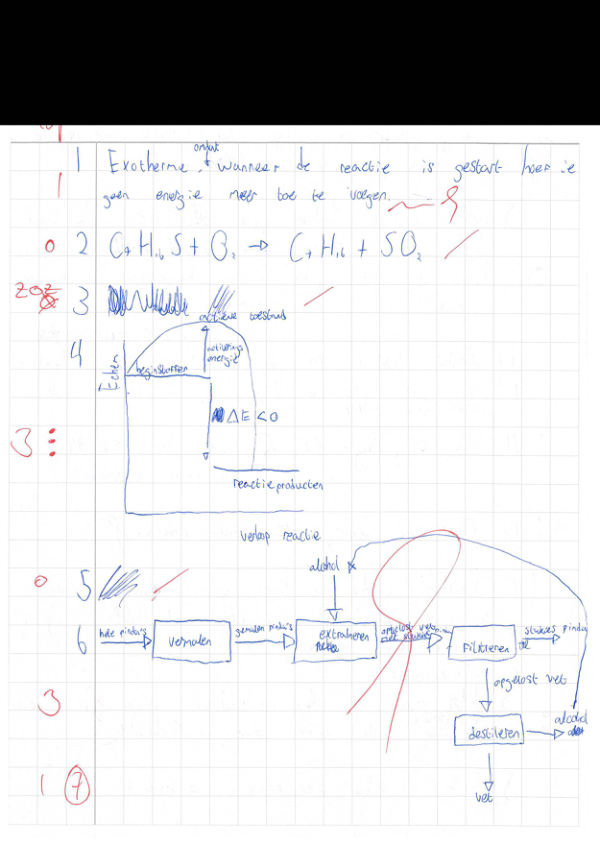 omdat
1 Exotherme, wanneer de reactie is gestart hoef je
1 geen energie meer toe te voegen.
0 2 C₇H₁₆S + O₂ → C₇H₁₆ + SO₂
3
actieve toestand
4 Echem beginstoffen activerings energie
ΔE < 0
3
reactieproducten
verloop reactie
alcohol
0 5
6 hele pinda's vermalen gemalen pinda's extraheren opgelost vet filtreren stukjes pinda
opgelost vet
3
destileren alcohol
1 7
vet